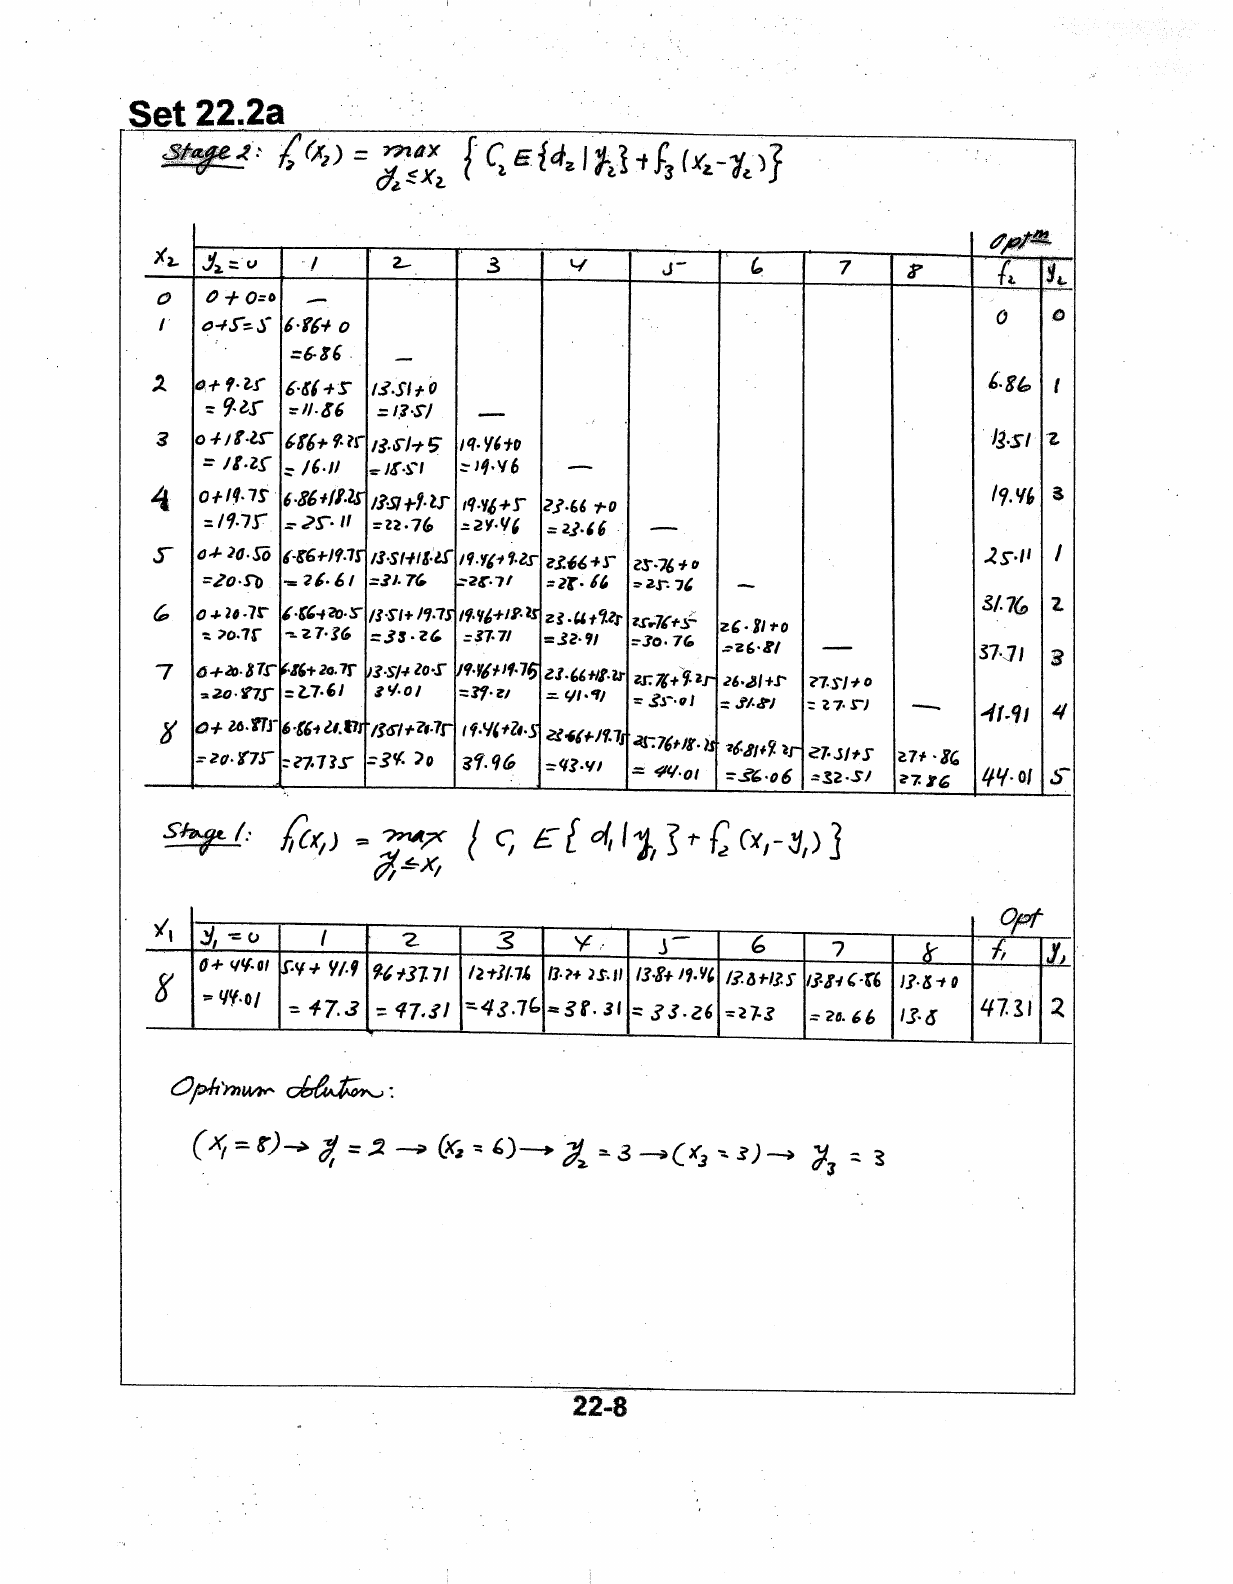 Set 22.2a
Stage 2: f₂(x₂) = max { C₂ E{d₂|y₂} + f₃(x₂-y₂)}
y₂≤x₂
Optm
x₂ y₂=0 1 2 3 4 5 6 7 8 f₂ y₂
0 0+0=0 — 0 0
1 0+5=5 6.86+0
=6.86 —
2 0+9.25 6.86+5 13.51+0 6.86 1
=9.25 =11.86 =13.51 —
3 0+18.25 686+9.25 13.51+5 19.46+0 13.51 2
=18.25 =16.11 =18.51 =19.46 —
4 0+19.75 6.86+18.25 13.51+9.25 19.46+5 23.66+0 19.46 3
=19.75 =25.11 =22.76 =24.46 =23.66 —
5 0+20.50 6.86+19.75 13.51+18.25 19.46+9.25 23.66+5 25.76+0 25.11 1
=20.50 =26.61 =31.76 =28.71 =28.66 =25.76 —
6 0+20.75 6.86+20.5 13.51+19.75 19.46+18.25 23.66+9.25 25.76+5 26.81+0 31.76 2
=20.75 =27.36 =33.26 =37.71 =32.91 =30.76 =26.81 — 37.71 3
7 0+20.875 6.86+20.75 13.51+20.5 19.46+19.75 23.66+18.25 25.76+9.25 26.81+5 27.51+0
=20.875 =27.61 34.01 =39.21 =41.91 =35.01 =31.81 =27.51 — 41.91 4
8 0+20.875 6.86+20.875 13.51+20.75 19.46+20.5 23.66+19.75 25.76+18.25 26.81+9.25 27.51+5 27+.86
=20.875 =27.735 =34.20 39.96 =43.41 =44.01 =36.06 =32.51 27.86 44.01 5
Stage 1: f₁(x₁) = max { C₁ E{d₁|y₁} + f₂(x₁-y₁)}
y₁≤x₁
Opt
x₁ y₁=0 1 2 3 4 5 6 7 8 f₁ y₁
8 0+44.01 5.4+41.9 9.6+37.71 12+31.76 13.2+25.11 13.8+19.46 13.8+13.5 13.8+6.86 13.8+0
=44.01 =47.3 =47.31 =43.76 =38.31 =33.26 =27.3 =20.66 13.8 47.31 2
Optimum solution:
(x₁=8)→ y₁=2 → (x₂=6)→ y₂=3 →(x₃=3)→ y₃=3
22-8